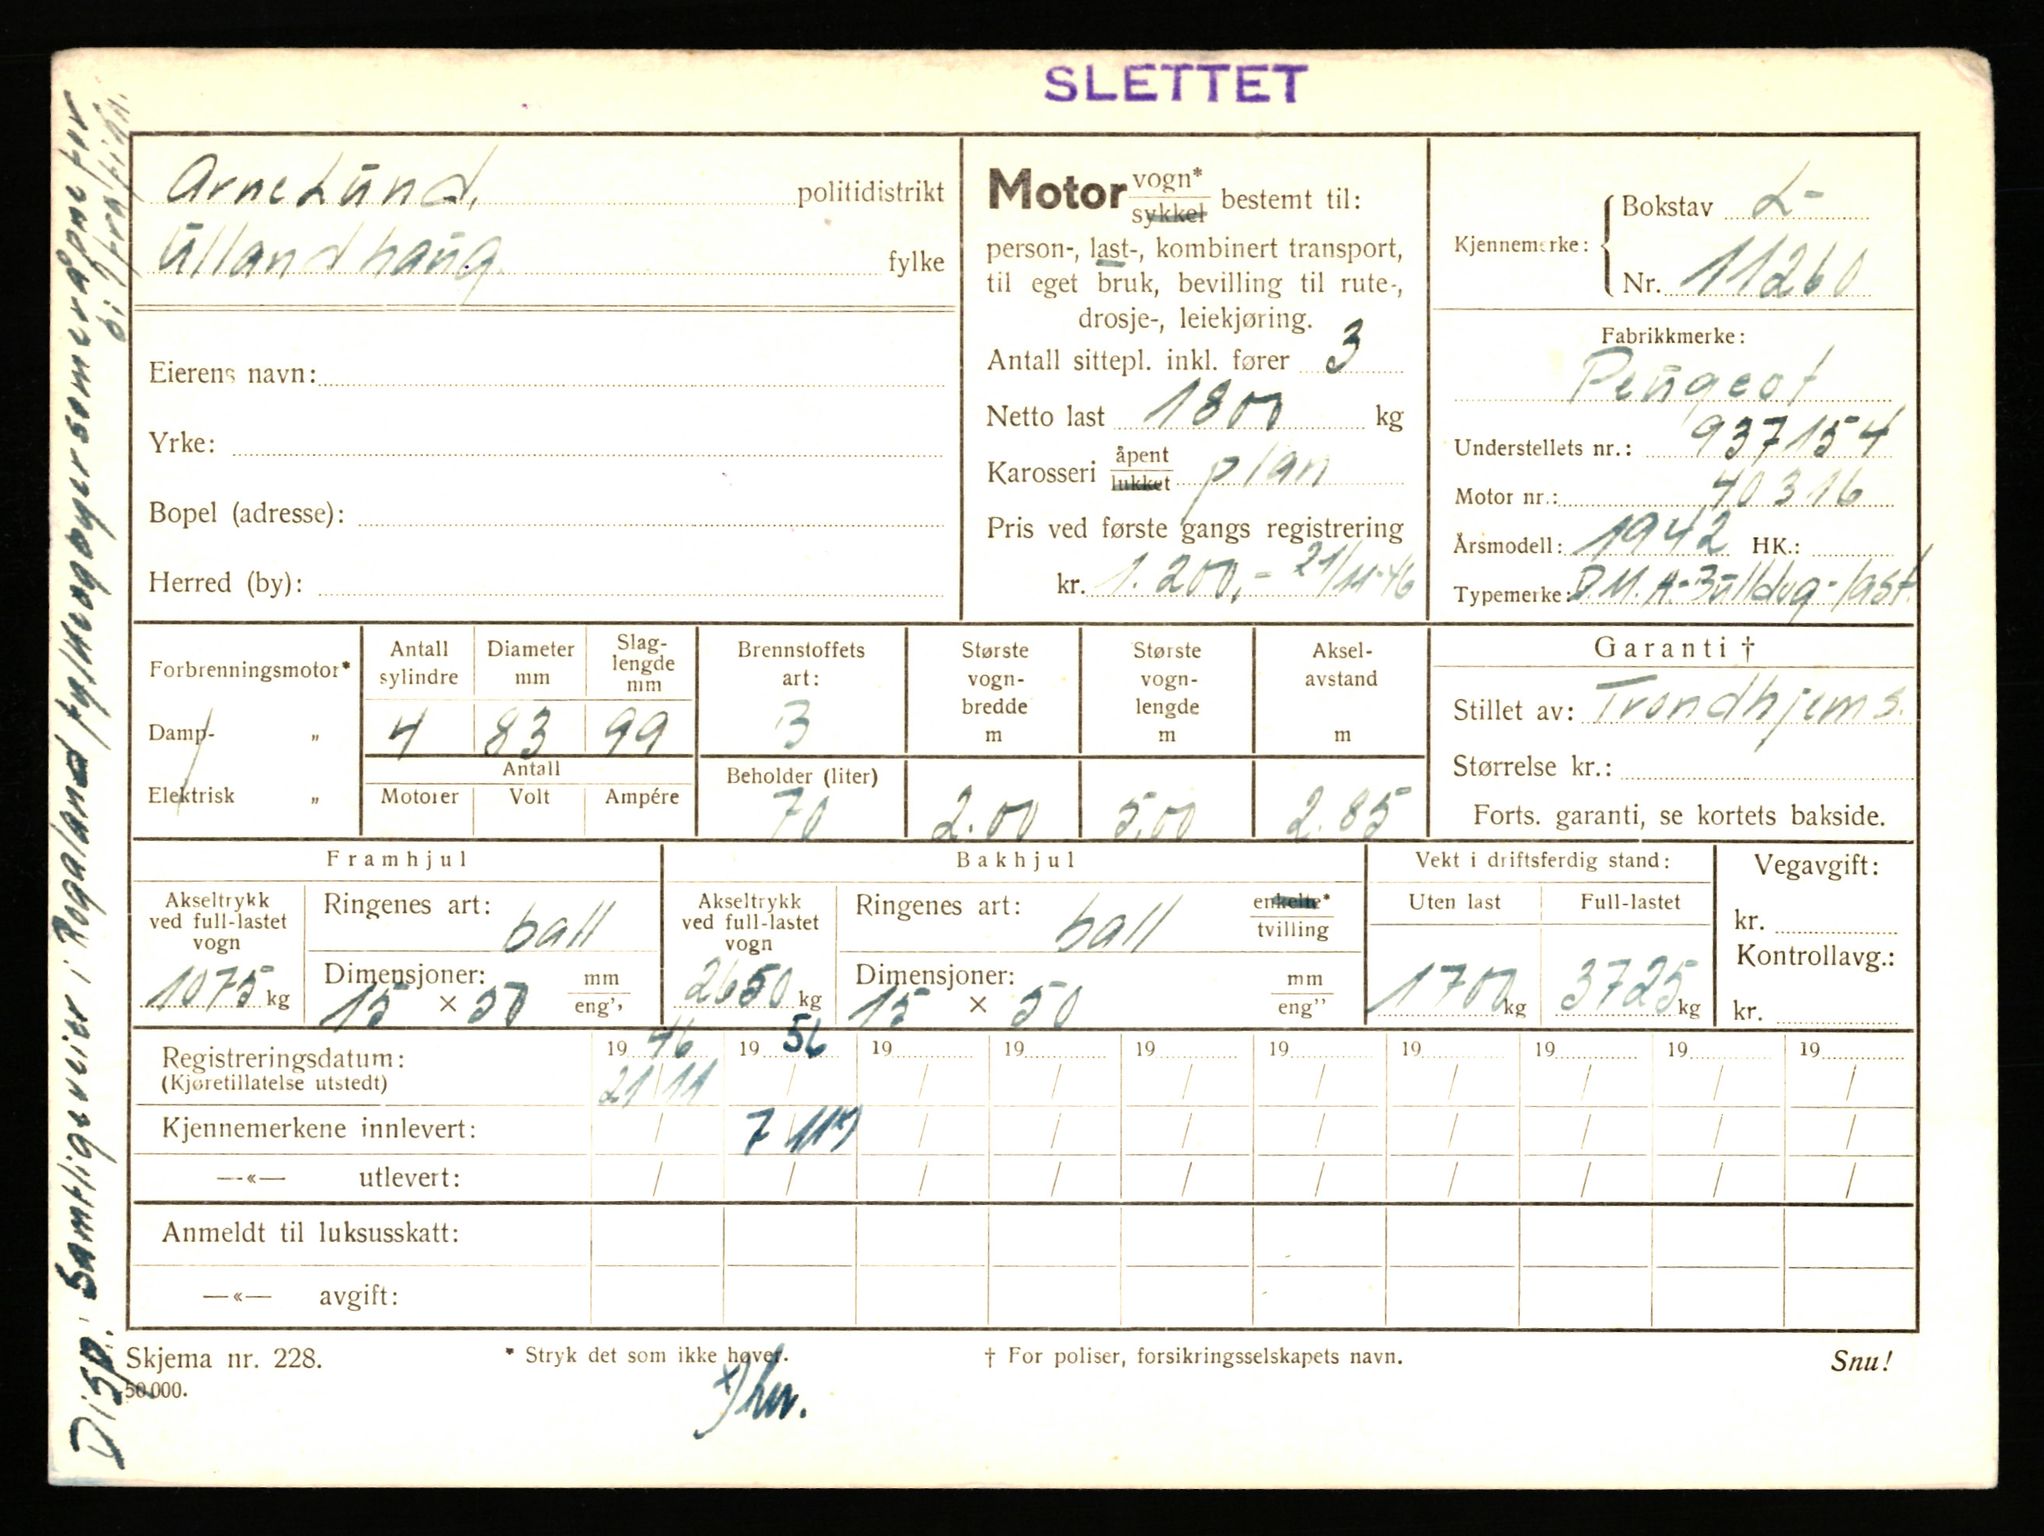 SLETTET
Disp: Samtlige veier i Rogaland fylke og byer som er åpne for
biltrafikk.
Arne Lund, politidistrikt
Ullandhaug fylke
Eierens navn:
Yrke:
Bopel (adresse):
Herred (by):
Motor vogn* sykkel bestemt til:
person-, last-, kombinert transport,
til eget bruk, bevilling til rute-,
drosje-, leiekjøring.
Antall sittepl. inkl. fører 3
Netto last 1800 kg
Karosseri åpent lukket plan
Pris ved første gangs registrering
kr. 1.200,- 21/11-46
Kjennemerke: Bokstav L-
Nr. 11260
Fabrikkmerke:
Peugeot
Understellets nr.: 937154
Motor nr.: 40316
Årsmodell: 1942 HK.:
Typemerke: D.M.A-Bulldog-last.
Forbrenningsmotor*
Damp- „
Elektrisk „
Antall sylindre
Diameter mm
Slag-lengde mm
4 83 99
Antall
Motorer Volt Ampére
Brennstoffets art:
B
Beholder (liter)
70
Største vogn-bredde m
2.00
Største vogn-lengde m
5.00
Aksel-avstand m
2.85
Garanti †
Stillet av: Trondhjems.
Størrelse kr.:
Forts. garanti, se kortets bakside.
Framhjul
Akseltrykk ved full-lastet vogn
1075 kg
Ringenes art: ball
Dimensjoner: mm
15 × 50 eng''
Bakhjul
Akseltrykk ved full-lastet vogn
2650 kg
Ringenes art: ball enkelte* tvilling
Dimensjoner: mm
15 × 50 eng''
Vekt i driftsferdig stand:
Uten last Full-lastet
1700 kg 3725 kg
Vegavgift:
kr.
Kontrollavg.:
kr.
Registreringsdatum: 19 46 19 56 19 19 19 19 19 19 19 19
(Kjøretillatelse utstedt) 21/11 / / / / / / / / /
Kjennemerkene innlevert: / 7/11 x) / / / / / / / /
—«— utlevert: / / / / / / / / / /
Anmeldt til luksusskatt:
—«— avgift:
Skjema nr. 228. * Stryk det som ikke høver. † For poliser, forsikringsselskapets navn. Snu!
50000.
x)